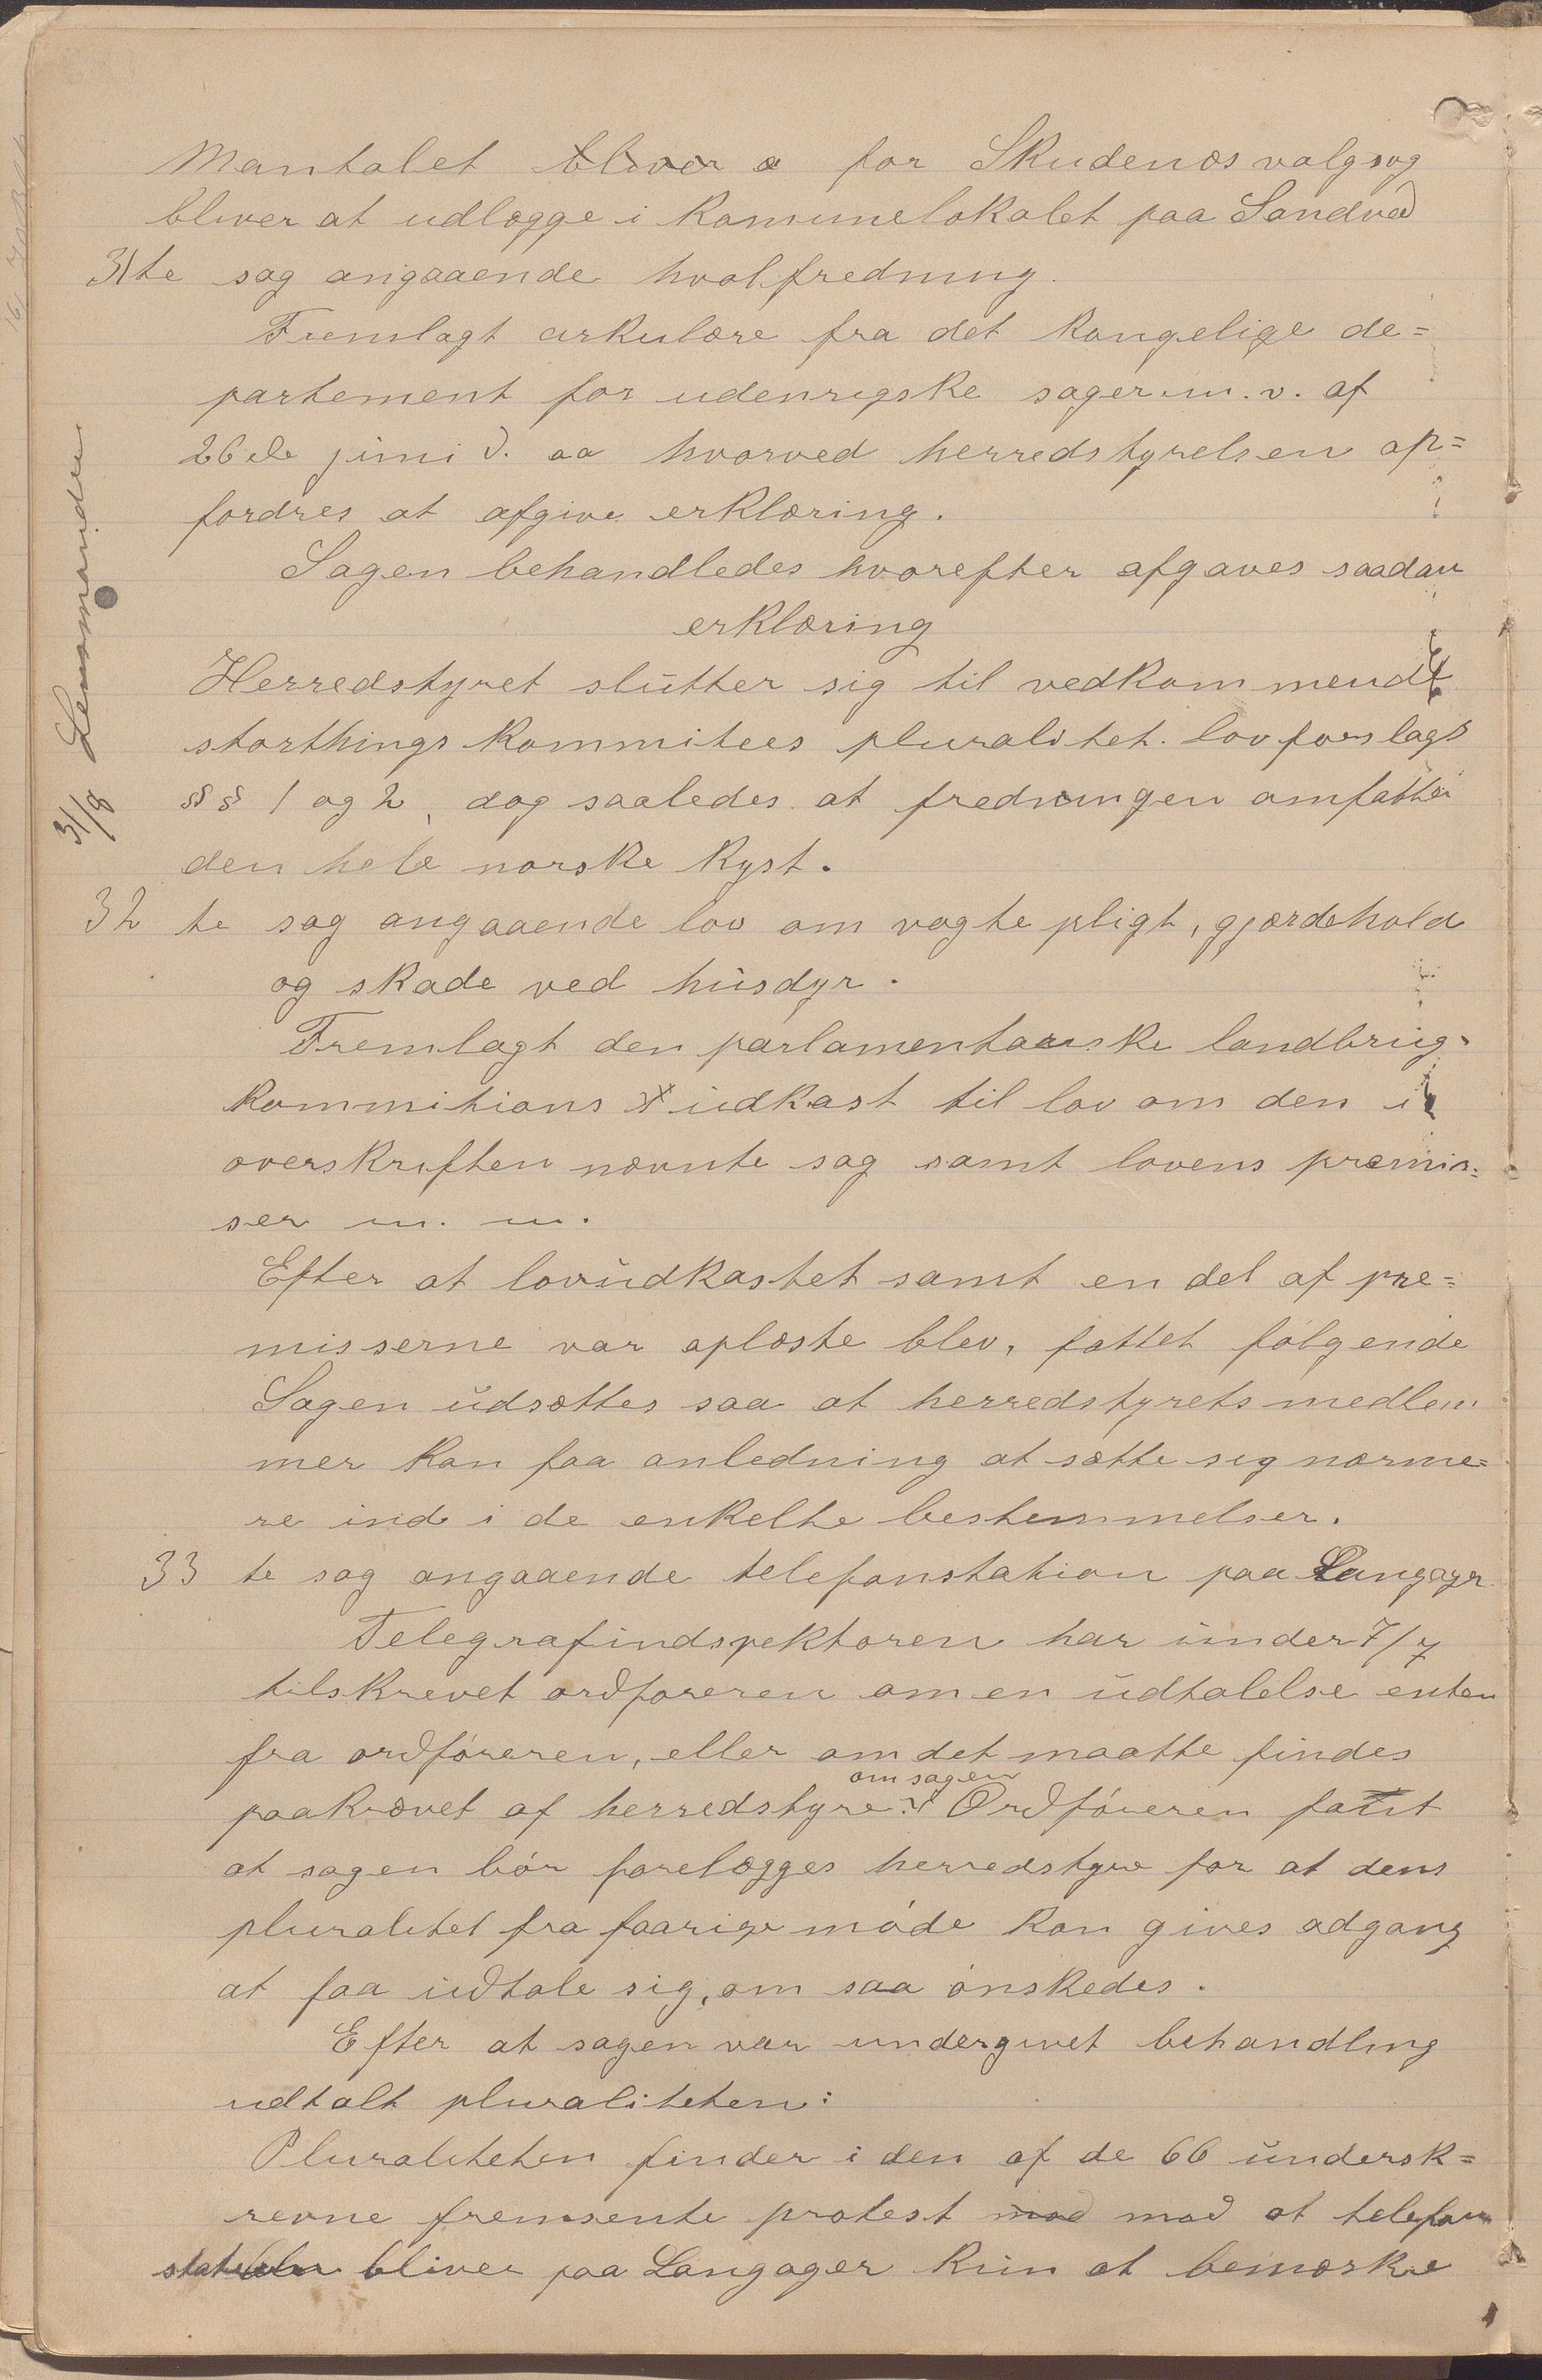 Mantalet bliver a for Skudenæs valgsog
bliver at udlægge i Komunelokalet paa Sandved
31te sag angaaende hvalfredning.
Fremlagt cirkulære fra det Kongelige de=
partement for udenrigske sager m. v. af
26de juni d. aa hvorved herredstyrelsen op=
fordres at afgive erklæring.
Sagen behandledes hvorefter afgaves saadan
erklæring
Herredstyret slutter sig til vedkommende
storthings Kommitees pluralitet lovforslags
§§ 1 og 2, dog saaledes at fredningen omfatter
den hele norske Kyst.
31/8 Lensmanden
32 te sag angaaende lov om vogte pligt, gjærdehold
og skade ved husdyr.
Fremlagt den parlamentariske landbrug-
Kommitions udkast til lov om den i
overskriften nævnte sag samt lovens premis=
ser m. m.
Efter at lovudkastet samt en del af pre=
misserne var oplæste blev, fattet følgende
Sagen udsættes saa at herredstyrets medlem
mer Kan faa anledning at sætte sig nærme=
re ind i de enkelte bestemmelser.
33 te sag angaaende telefonstation paa Langager
Telegrafindspektoren har under 7/7
tilskrevet ordføreren om en udtalelse enten
fra ordføreren, eller om det maatte findes
om sagen
paakrævet af herredstyret Ordføreren fandt
at sagen bør forelægges herredstyre for at dens
pluralitet fra faarige møde Kan gives adgang
at faa udtale sig, om saa ønskedes.
Efter at sagen var undergivet behandling
udtalt pluraliteten:
Pluraliteten finder i den af de 66 undersk=
revne fremsente protest mod mod at telefon
bliver paa Langager Kun at bemærke